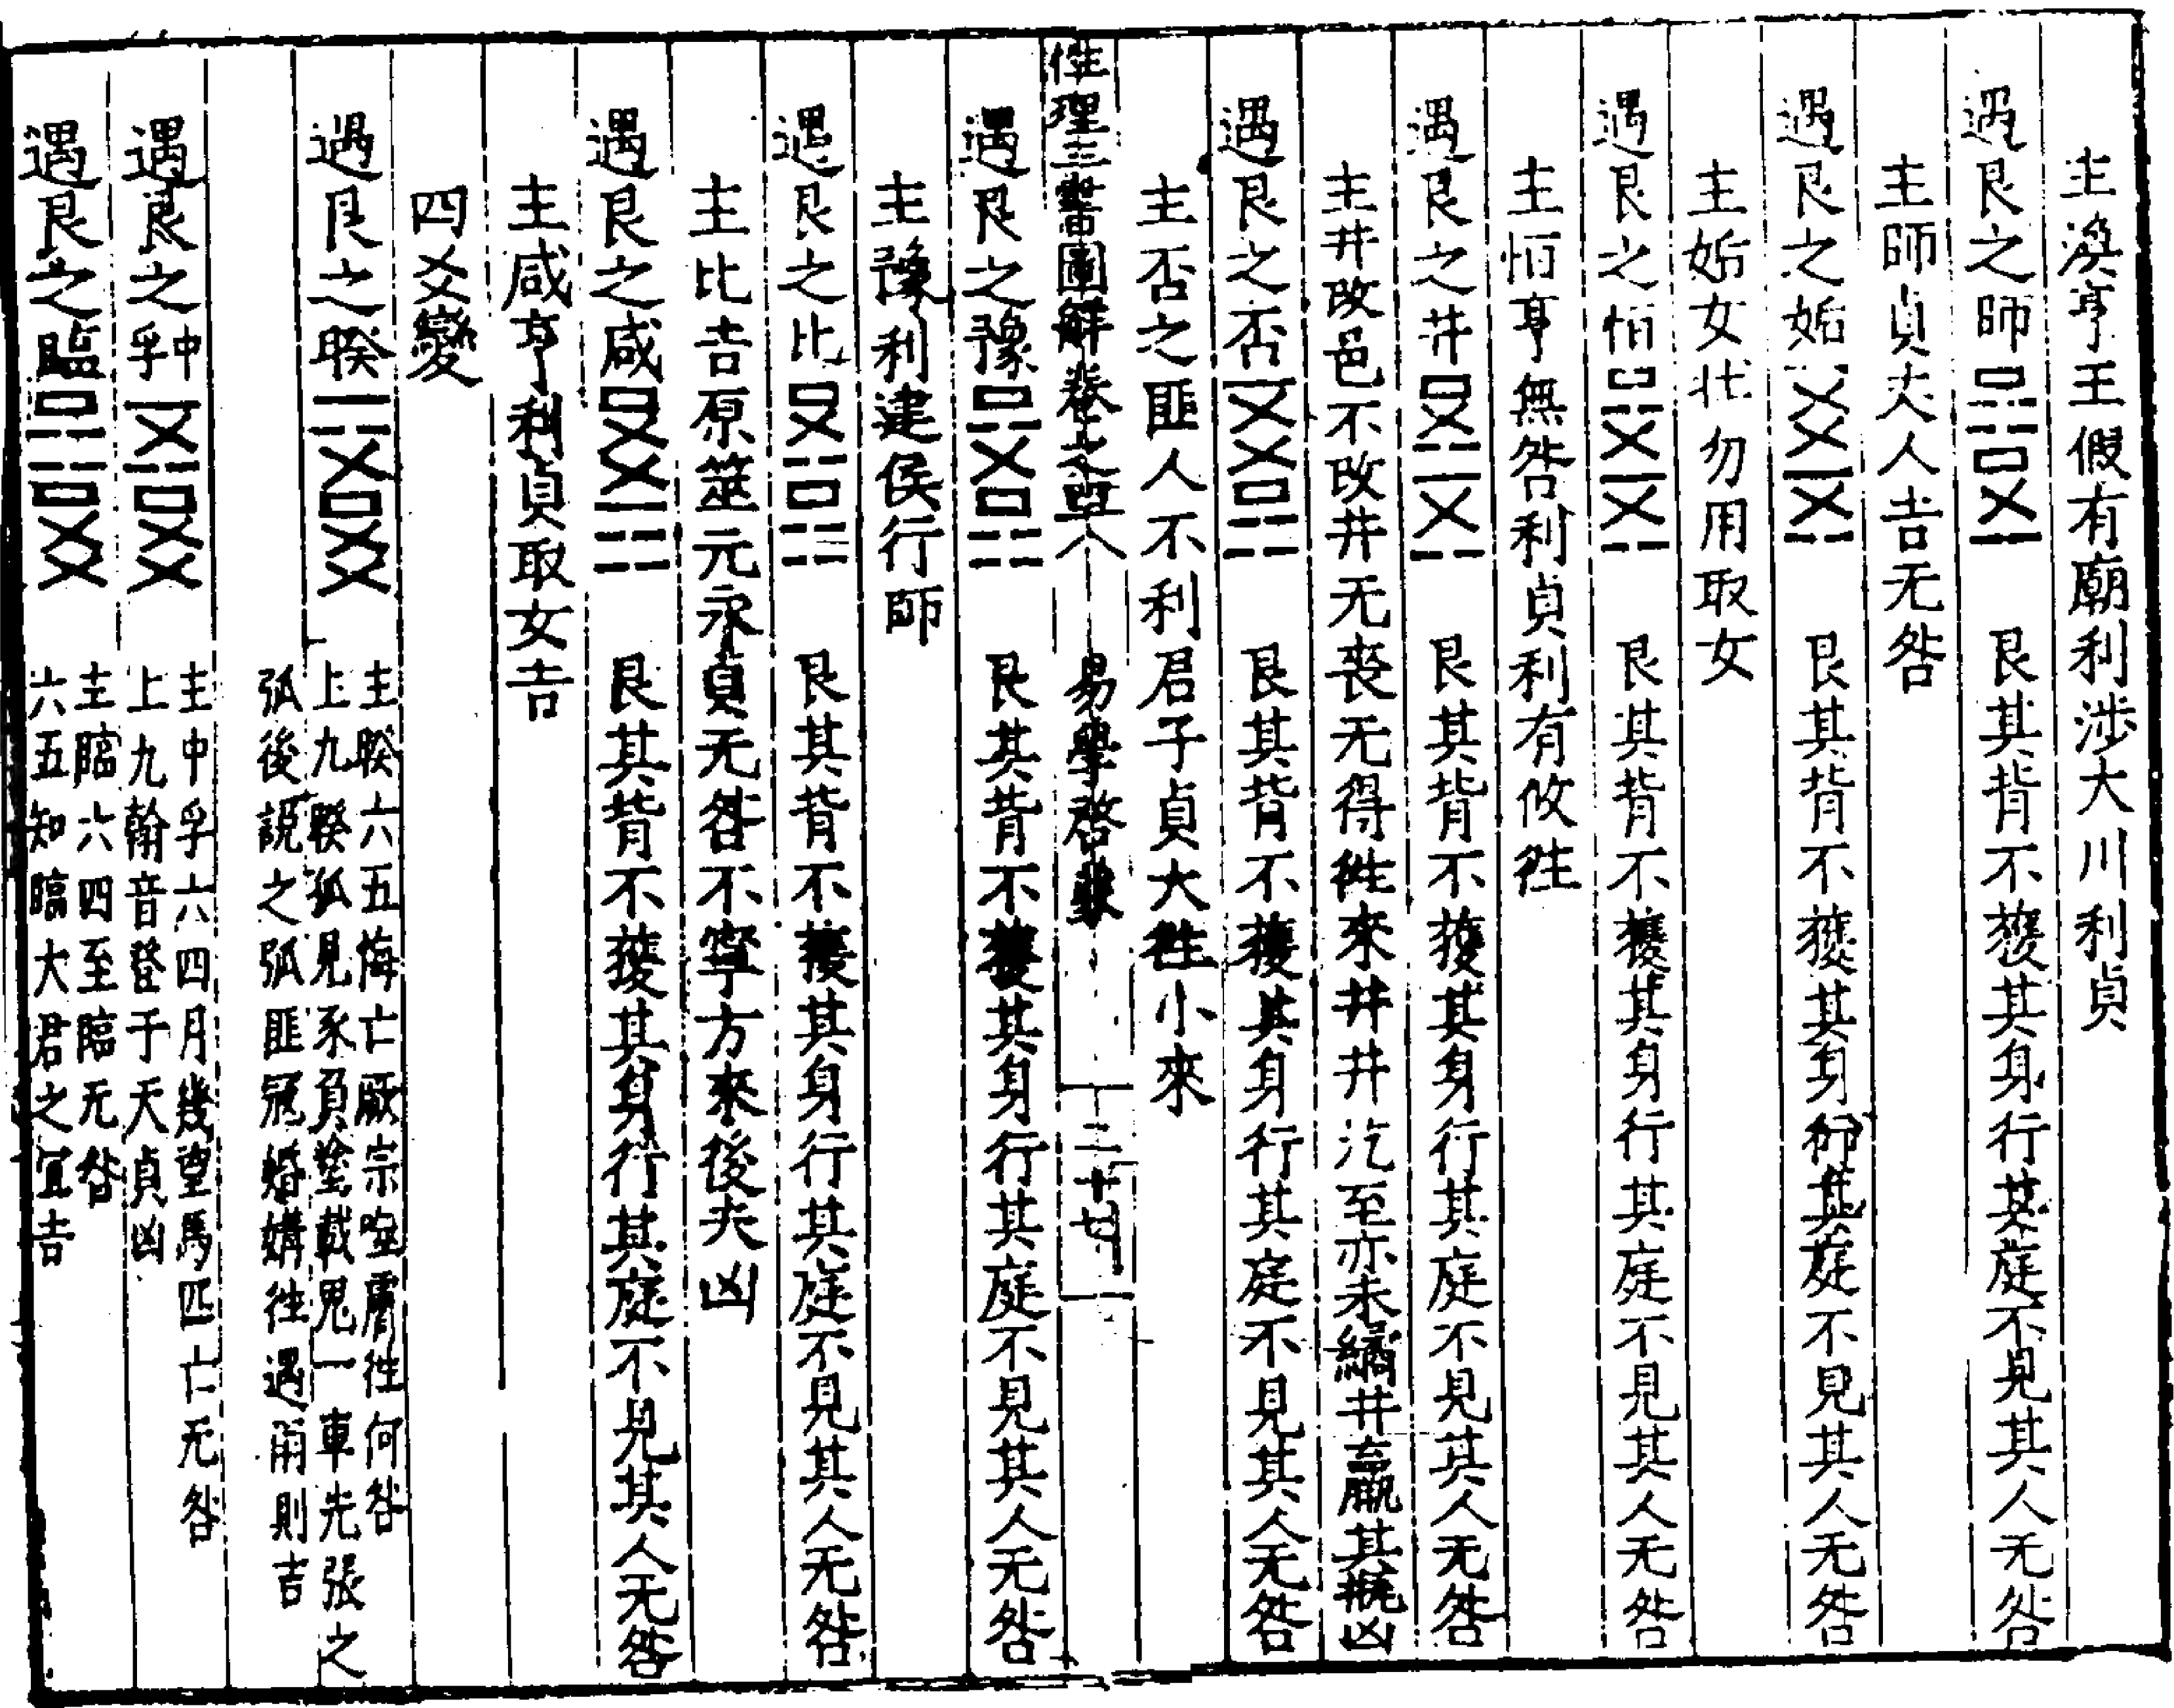 主渙亨王假有廟利涉大川利貞
遇艮之師 艮其背不獲其身行其庭不見其人无咎
主師貞丈人吉无咎
遇艮之姤 艮其背不獲其身行其庭不見其人无咎
主姤女壮勿用取女
遇艮之恒 艮其背不獲其身行其庭不見其人无咎
主恒亨無咎利貞利有攸徃
遇艮之井 艮其背不獲其身行其庭不見其人无咎
主井改邑不改井无丧无得徃來井井汔至亦未繘井羸其瓶凶
遇艮之否 艮其背不獲其身行其庭不見其人无咎
主否之匪人不利君子貞大徃小來
性理三書圖解卷之 八 易學啓蒙 二十七
遇艮之豫 艮其背不獲其身行其庭不見其人无咎
主豫利建侯行師
遇艮之比 艮其背不獲其身行其庭不見其人无咎
主比吉原筮元永貞无咎不寧方來後夫凶
遇艮之咸 艮其背不獲其身行其庭不見其人无咎
主咸亨利貞取女吉
四爻變
遇艮之睽
主睽六五悔亡厥宗噬膚徃何咎
上九睽孤見豕負塗載鬼一車先張之
弧後說之弧匪冦婚媾徃遇雨則吉
遇艮之中孚
主中孚六四月幾望馬匹亡无咎
上九翰音登于天貞凶
遇艮之臨
主臨六四至臨无咎
六五知臨大君之宜吉